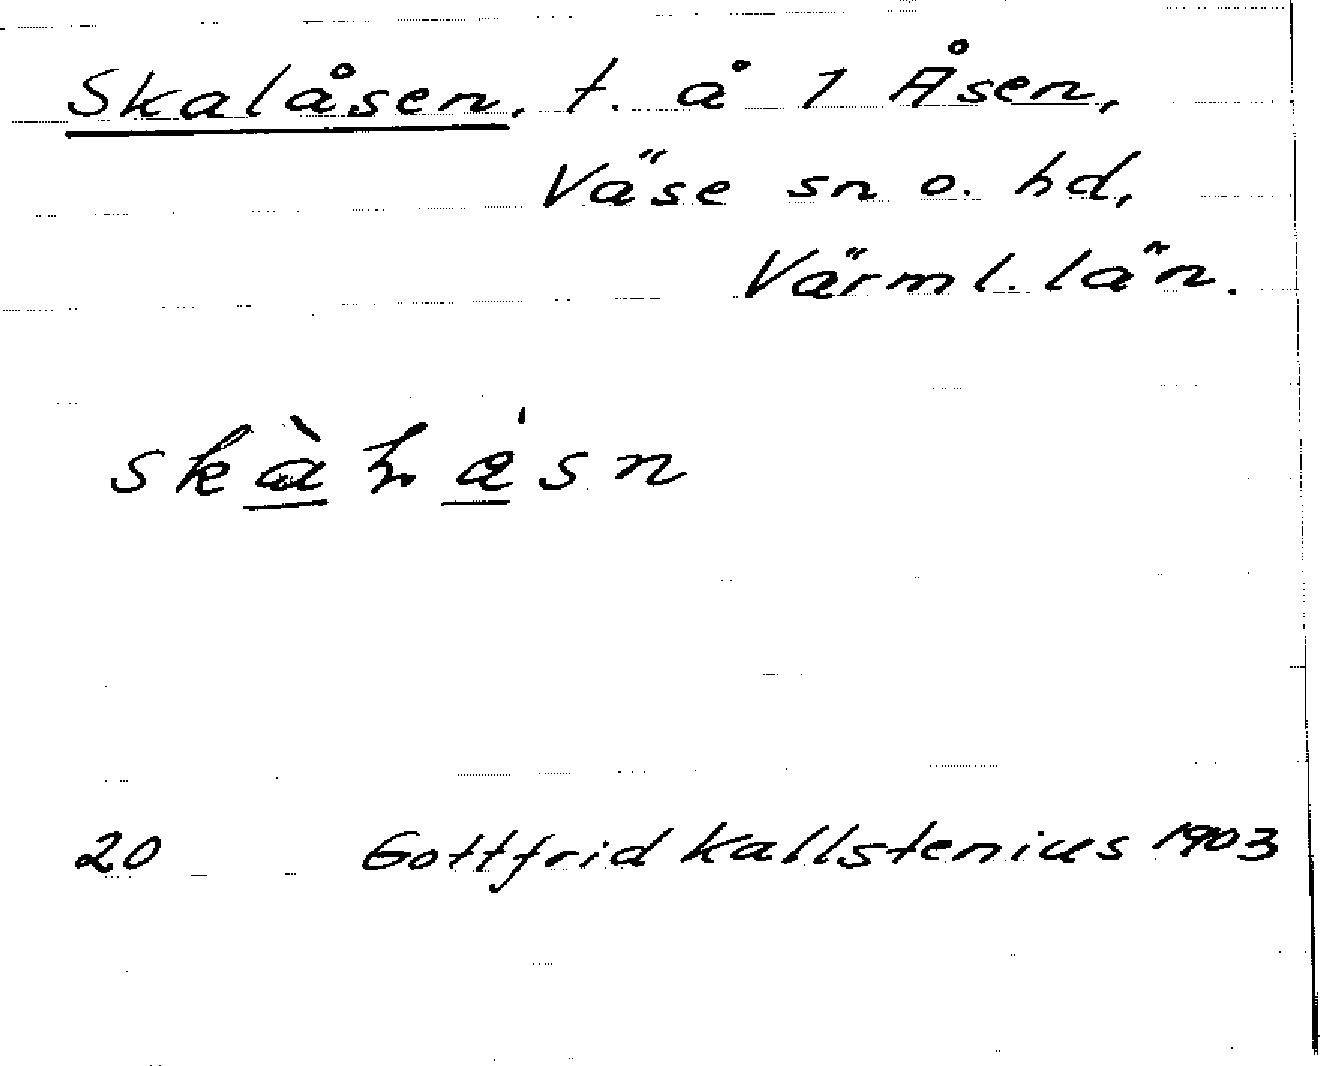 Skalåsen, t. å 1 Åsen,
Väse sn o. hd,
Värml. län.
20 Gottfrid Kallstenius 1903